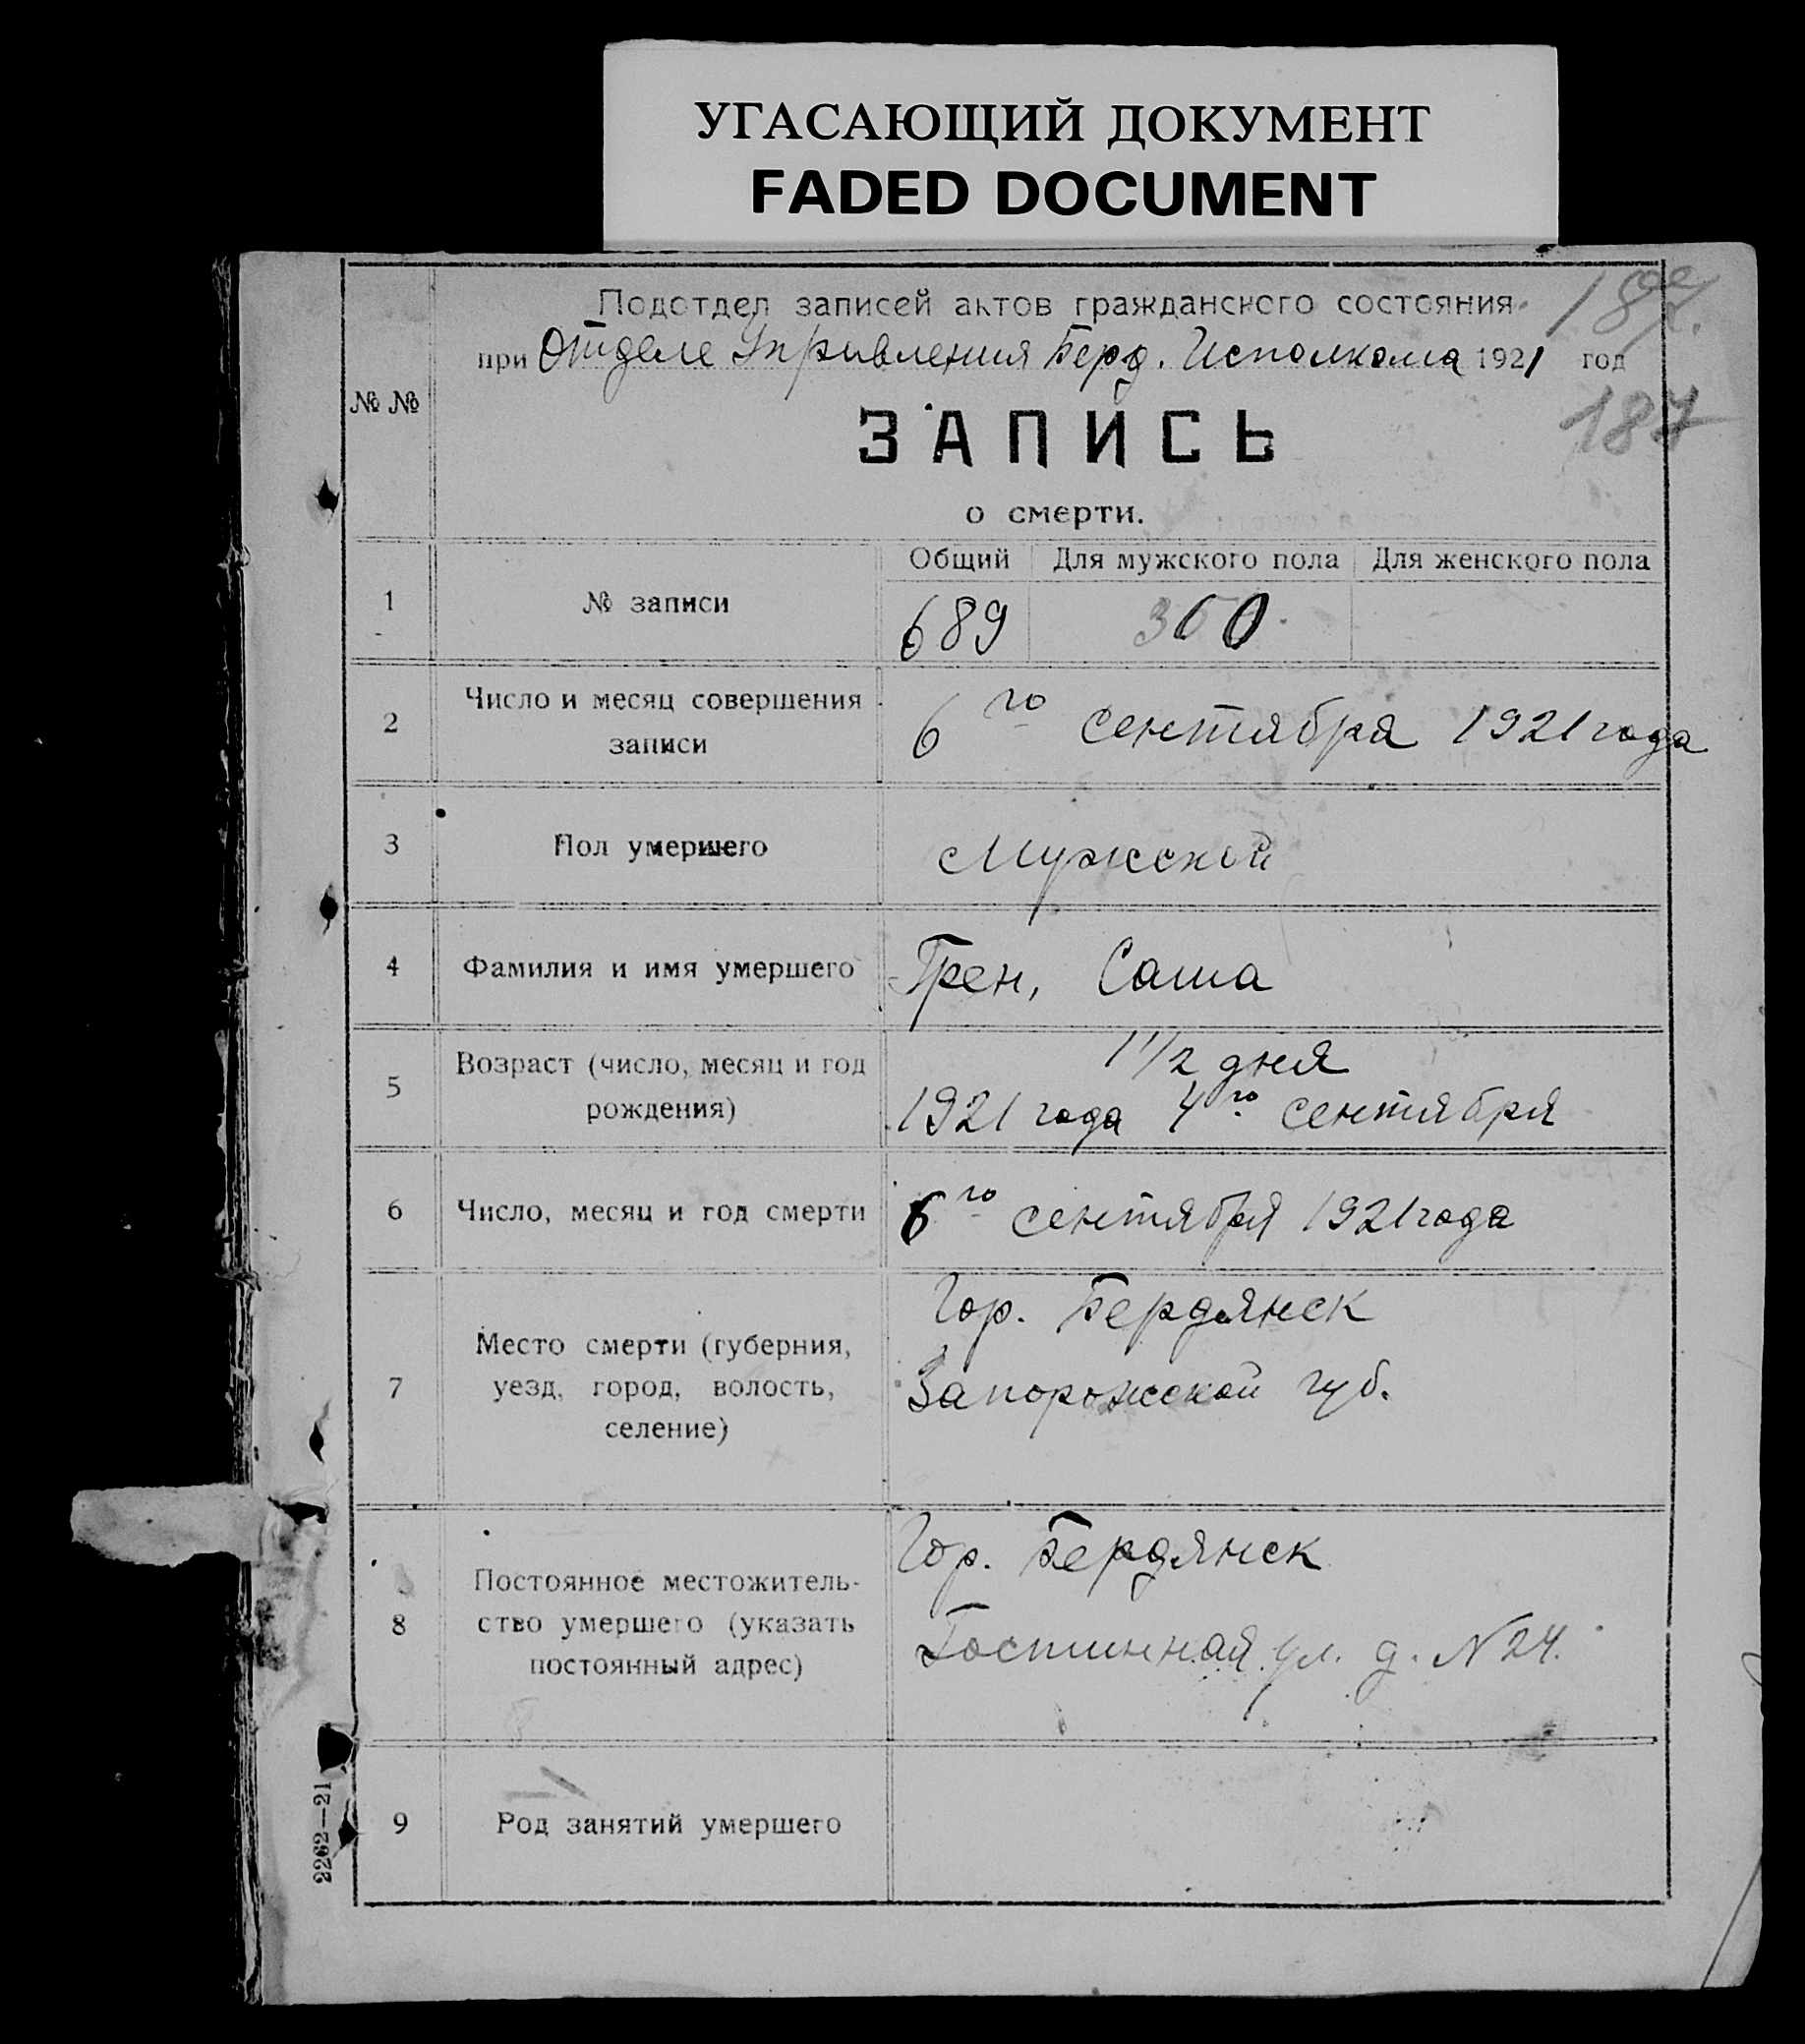 УГАСАЮЩИЙ ДОКУМЕНТ
FADED DOCUMENT
Подотдел записей актов гражданского состояния
при Отделе Управления Берд. Исполкома 1921 год
187
№ №
ЗАПИСЬ
о смерти.
Общий Для мужского пола Для женского пола
1 № записи 689 360
2 Число и месяц совершения
записи
6го сентября 1921 года
3 Пол умершего Мужской
4 Фамилия и имя умершего Грен, Саша
5 Возраст (число, месяц и год
рождения)
1 1/2 дня
1921 года 4го сентября
6 Число, месяц и год смерти 6го сентября 1921 года
7 Место смерти (губерния,
уезд, город, волость,
селение)
Гор. Бердянск
Запорожской губ.
8 Постоянное местожитель-
ство умершего (указать
постоянный адрес)
Гор. Бердянск
Гостинная ул. д. N 24.
9 Род занятий умершего
2262—21